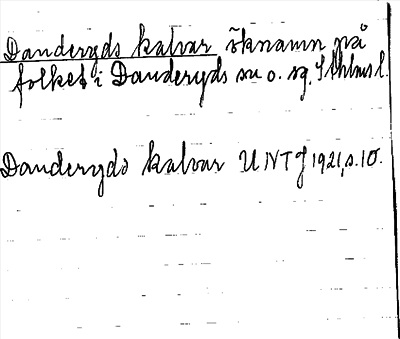 Danderyds kalvar öknamn på
folket i Danderyds sn o. sg, Sthlms l.
Danderyds kalvar UNTJ 1921, s. 10.